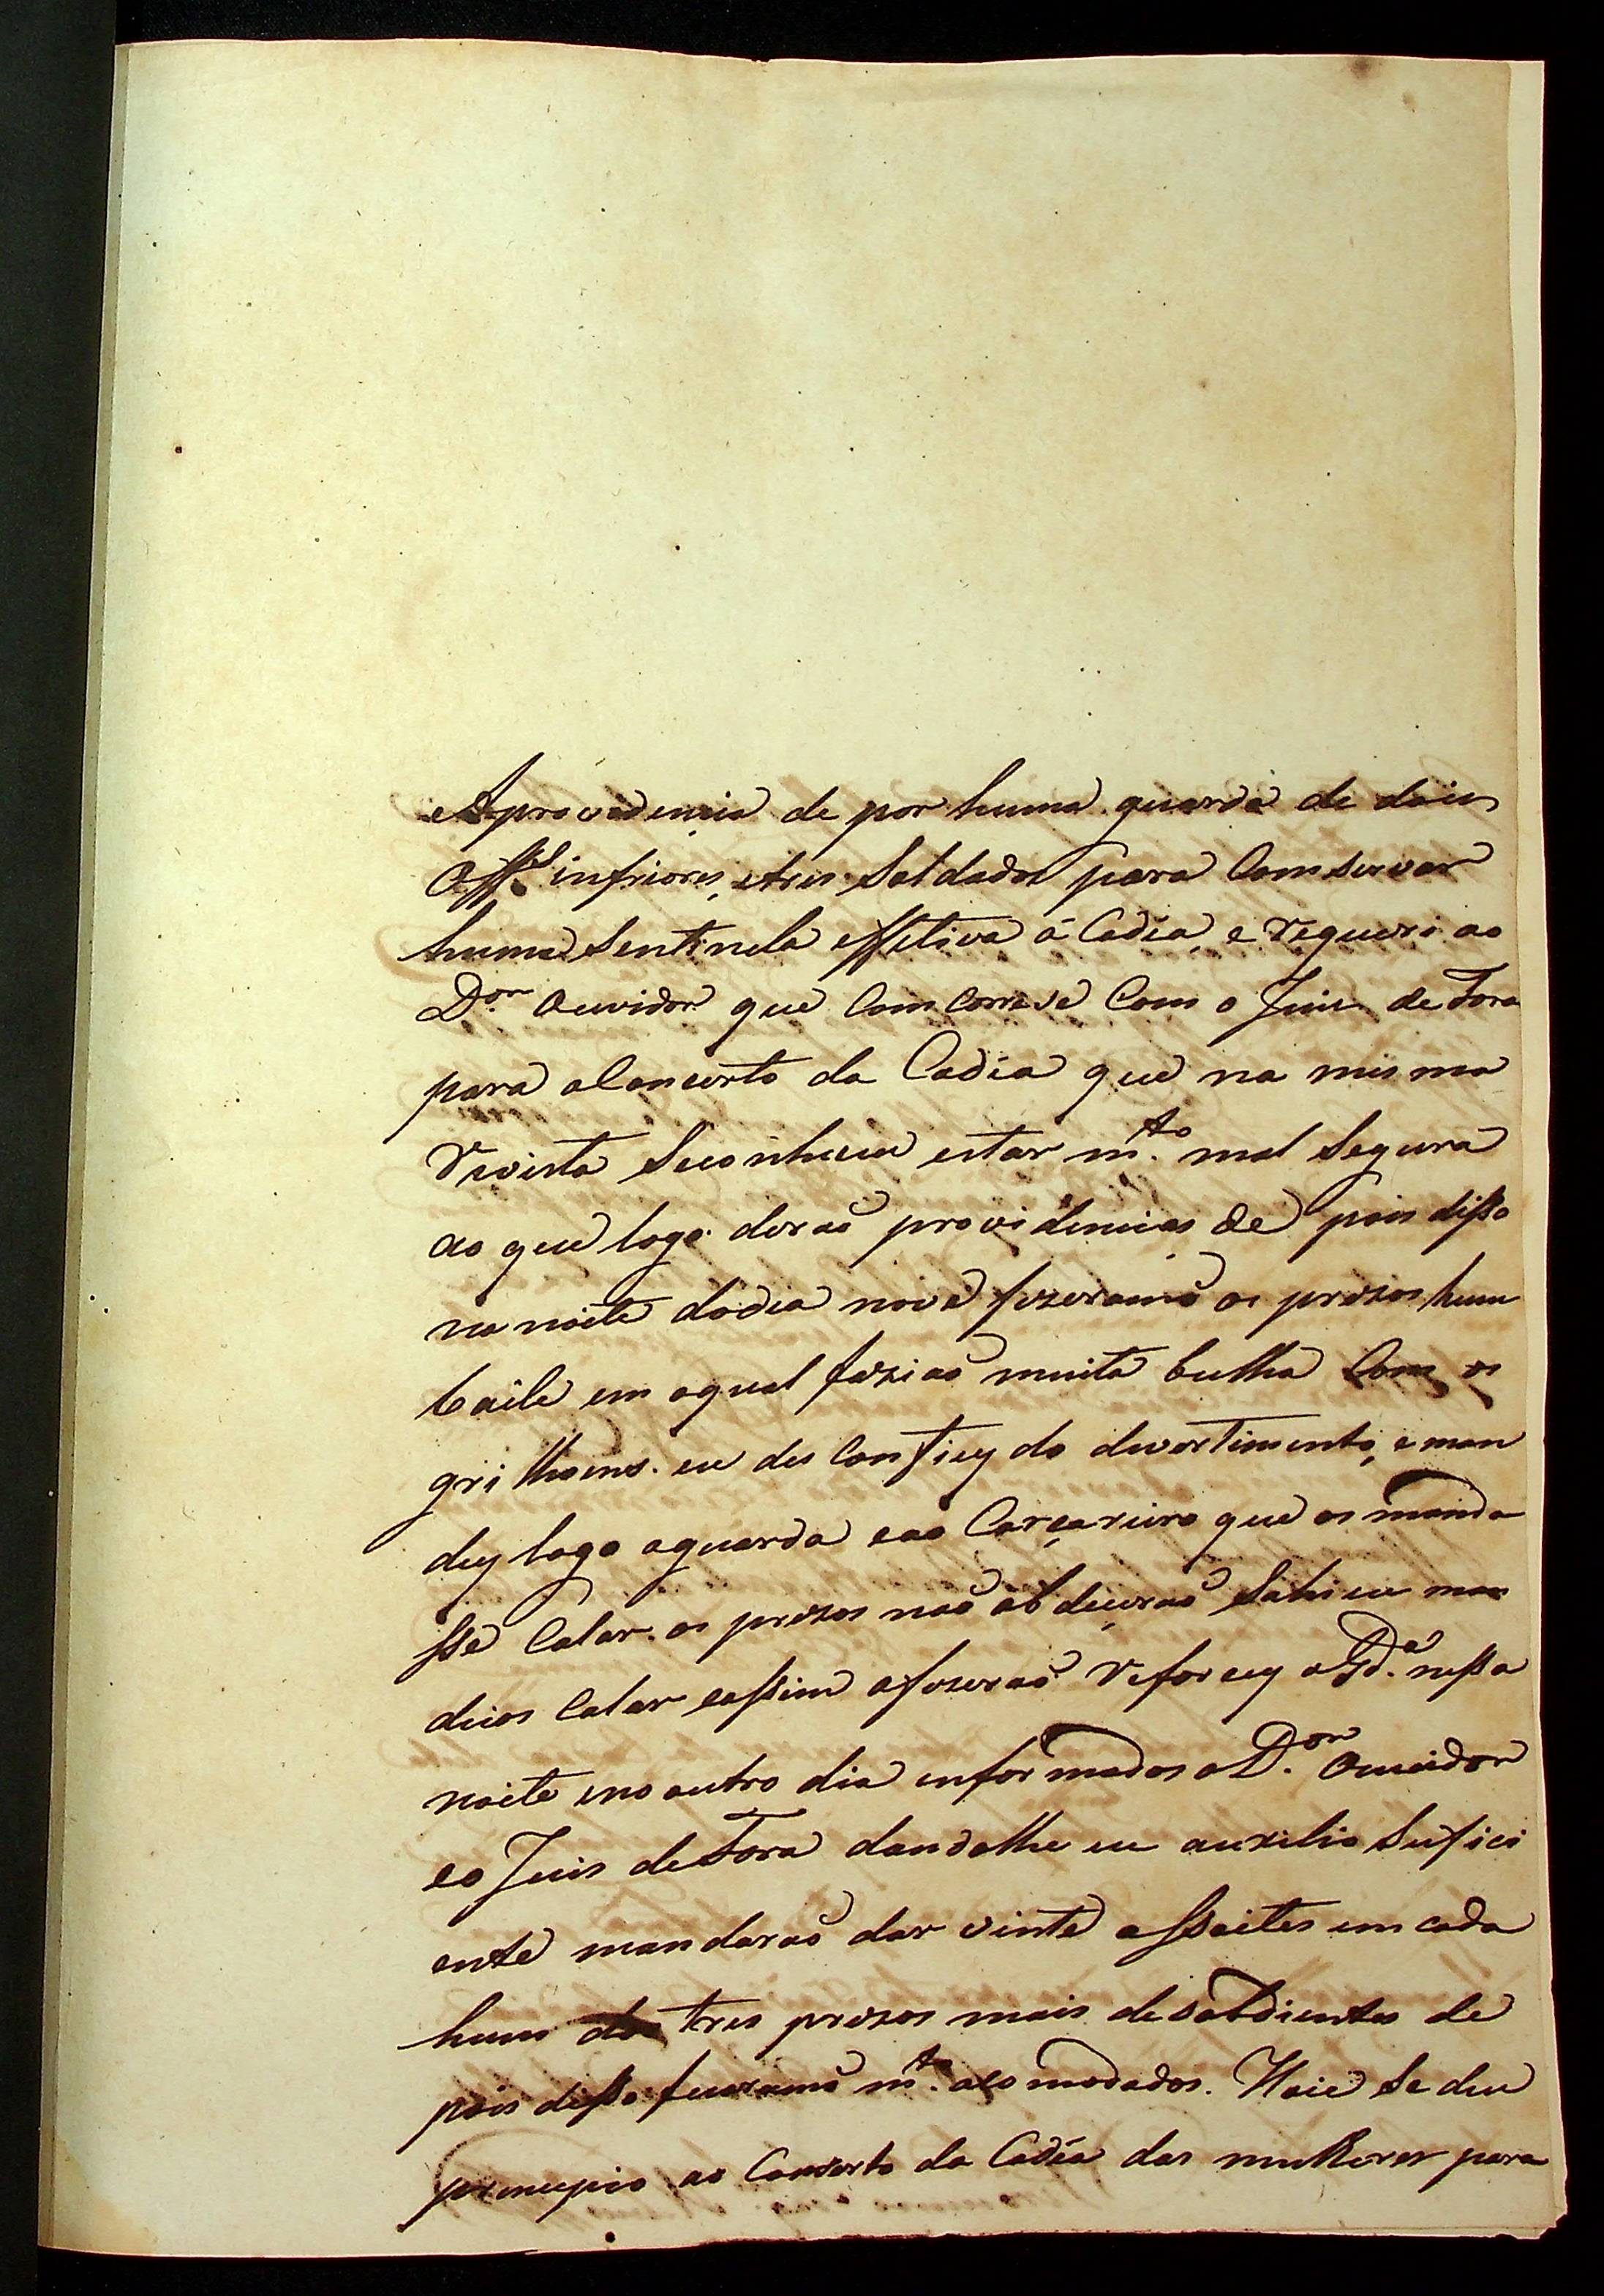 Aprovedencia de por huma guarda de dois
Off.es infriores, etres Soldados para Comservar
huma Sentinela effetiva á Cadêa, e requeri ao
D.or Ouvidor que ComCorrese Com o Juis de Fora
para oConcerto da Cadêa que na mesma
revista Seconheceu estar m.to mal Segura
ao que logo deraõ providencias de pois disso
na noite dodia nove fizeramõ os prezos hum
baile em oqual faziaõ muita bulha Com os
grilhoens. eu des Confiey do devertimento, e man
dey logo aguarda eao Carçareiro que os manda
sse Calar. os prezos naõ obdeceraõ
deios Calar eassim ofizeraõ reforcey aGd.a nessa
noite eno outro dia enformados oD.or Ouvidor
eo Juis deFora dandolhe eu auxilio Sufici
ente mandaraõ dar vinte assoites em cada
hum dos tres prezos mais desobdientes de
pois disso ficaramõ m.to acomodados. Hoie Se deu
principio ao Conserto da Cadêa das mulheres para